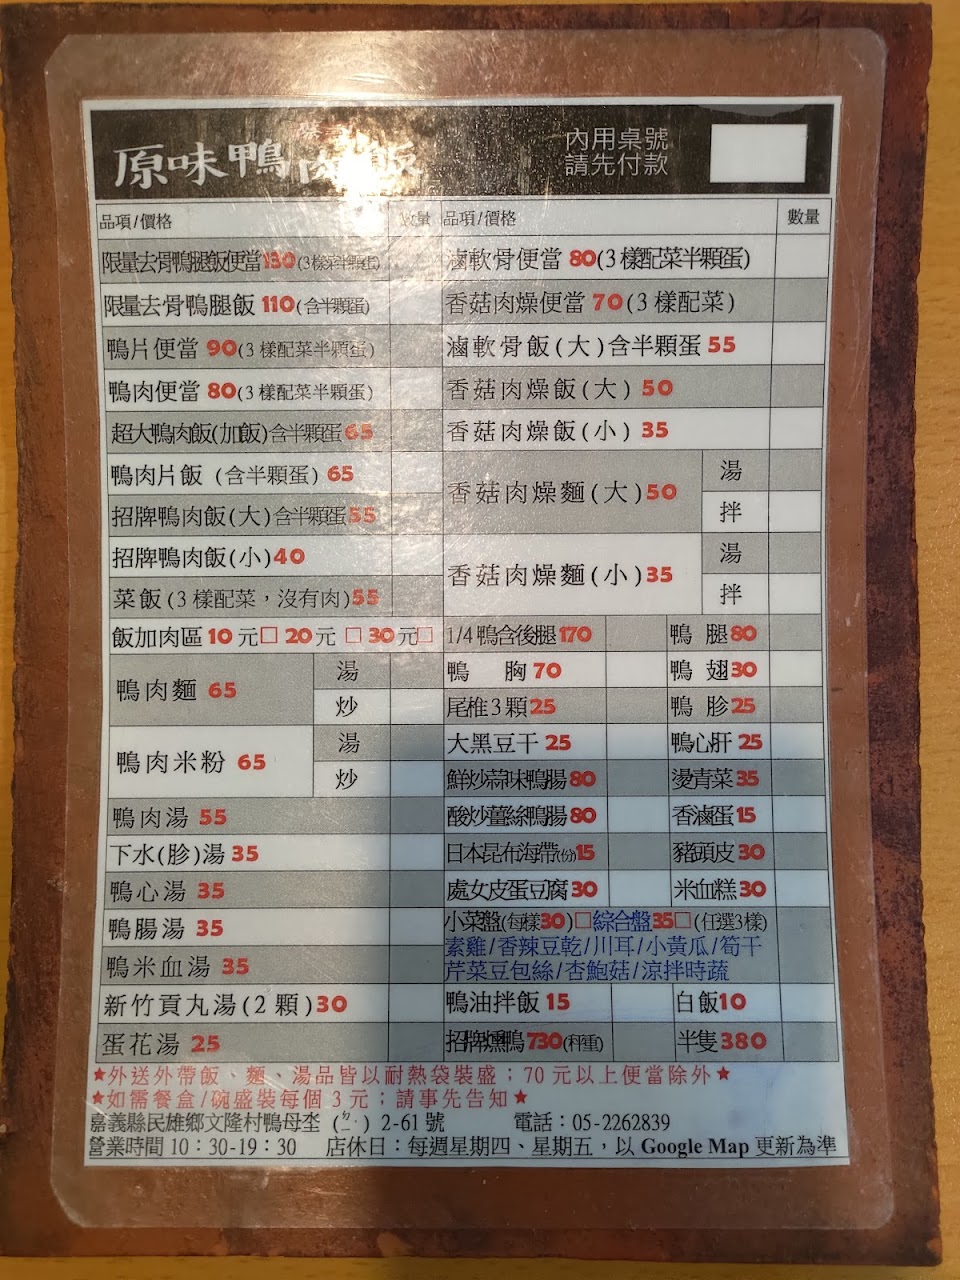 原味鴨肉飯
內用桌號
請先付款
品項/價格 數量 品項/價格 數量
限量去骨鴨腿飯便當130(3樣菜半顆蛋)
限量去骨鴨腿飯 110(含半顆蛋)
鴨片便當 90(3樣配菜半顆蛋)
鴨肉便當 80(3樣配菜半顆蛋)
超大鴨肉飯(加飯)含半顆蛋65
鴨肉片飯 (含半顆蛋) 65
招牌鴨肉飯(大)含半顆蛋55
招牌鴨肉飯(小)40
菜飯(3樣配菜，沒有肉)55
飯加肉區 10元□ 20元 □ 30元□
鴨肉麵 65 湯
炒
鴨肉米粉 65 湯
炒
鴨肉湯 55
下水(胗)湯 35
鴨心湯 35
鴨腸湯 35
鴨米血湯 35
新竹貢丸湯(2顆)30
蛋花湯 25
滷軟骨便當 80(3樣配菜半顆蛋)
香菇肉燥便當 70(3樣配菜)
滷軟骨飯(大)含半顆蛋 55
香菇肉燥飯(大) 50
香菇肉燥飯(小) 35
香菇肉燥麵(大)50 湯
拌
香菇肉燥麵(小)35 湯
拌
1/4鴨含後腿170 鴨 腿80
鴨 胸 70 鴨 翅30
尾椎3顆25 鴨 胗25
大黑豆干 25 鴨心肝 25
鮮炒蒜味鴨腸80 燙青菜35
酸炒薑絲鴨腸80 香滷蛋15
日本昆布海帶(份)15 豬頭皮30
處女皮蛋豆腐30 米血糕30
小菜盤(每樣30)□綜合盤35□(任選3樣)
素雞/香辣豆乾/川耳/小黃瓜/筍干
芹菜豆包絲/杏鮑菇/涼拌時蔬
鴨油拌飯 15 白飯10
招牌燻鴨730(秤重) 半隻380
★外送外帶飯、麵、湯品皆以耐熱袋裝盛；70元以上便當除外★
★如需餐盒/碗盛裝每個3元；請事先告知★
嘉義縣民雄鄉文隆村鴨母坔 (ㄉㄧˋ) 2-61號 電話：05-2262839
營業時間10：30-19：30 店休日：每週星期四、星期五，以 Google Map 更新為準